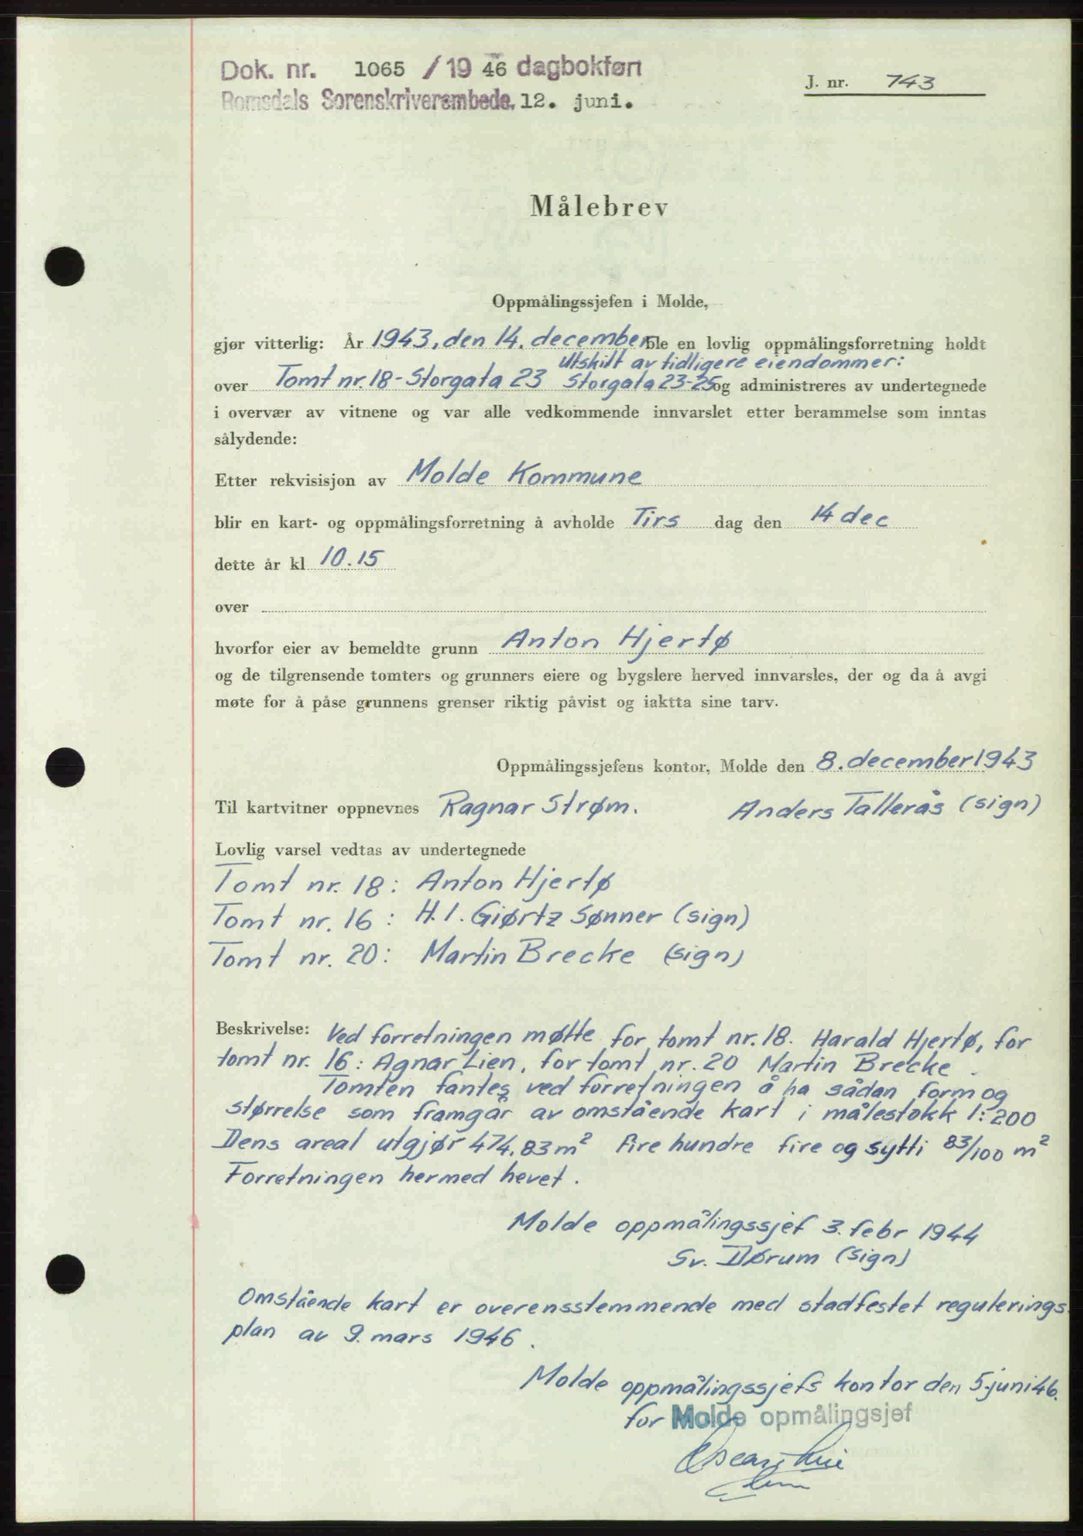 Dok. nr. 1065 / 19 46 dagbokført
Romsdals Sorenskriverembede. 12. juni.
J. nr. 743
Målebrev
Oppmålingssjefen i Molde,
gjør vitterlig: År 1943, den 14. december ble en lovlig oppmålingsforretning holdt
Utskilt av tidligere eiendommer:
over Tomt nr. 18 - Storgata 23 Storgata 23-25 og administreres av undertegnede
i overvær av vitnene og var alle vedkommende innvarslet etter berammelse som inntas
sålydende:
Etter rekvisisjon av Molde Kommune
blir en kart- og oppmålingsforretning å avholde Tirs dag den 14 dec
dette år kl 10.15
over
hvorfor eier av bemeldte grunn Anton Hjertø
og de tilgrensende tomters og grunners eiere og bygslere herved innvarsles, der og da å avgi
møte for å påse grunnens grenser riktig påvist og iaktta sine tarv.
Oppmålingssjefens kontor, Molde den 8. december 1943
Til kartvitner oppnevnes Ragnar Strøm. Anders Tallerås (sign)
Lovlig varsel vedtas av undertegnede
Tomt nr. 18: Anton Hjertø
Tomt nr. 16: H. I. Giørtz Sønner (sign)
Tomt nr. 20: Martin Brecke (sign)
Beskrivelse: Ved forretningen møtte for tomt nr. 18. Harald Hjertø, for
tomt nr. 16: Agnar Lien, for tomt nr. 20 Martin Brecke.
Tomten fantes ved forretningen å ha sådan form og
størrelse som framgår av omstående kart i målestokk 1:200
Dens areal utgjør 474,83 m² fire hundre fire og sytti 83/100 m²
Forretningen hermed hevet.
Molde oppmålingssjef 3. febr 1944
Sv. Dørum (sign)
Omstående kart er overensstemmende med stadfestet regulerings-
plan av 9. mars 1946.
Molde oppmålingssjefs kontor den 5. juni 46.
for Molde opmålingsjef